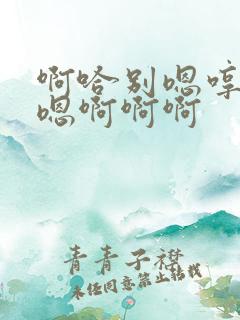 啊哈别嗯哼
嗯啊啊啊
青青子襟
未经同意禁止转载